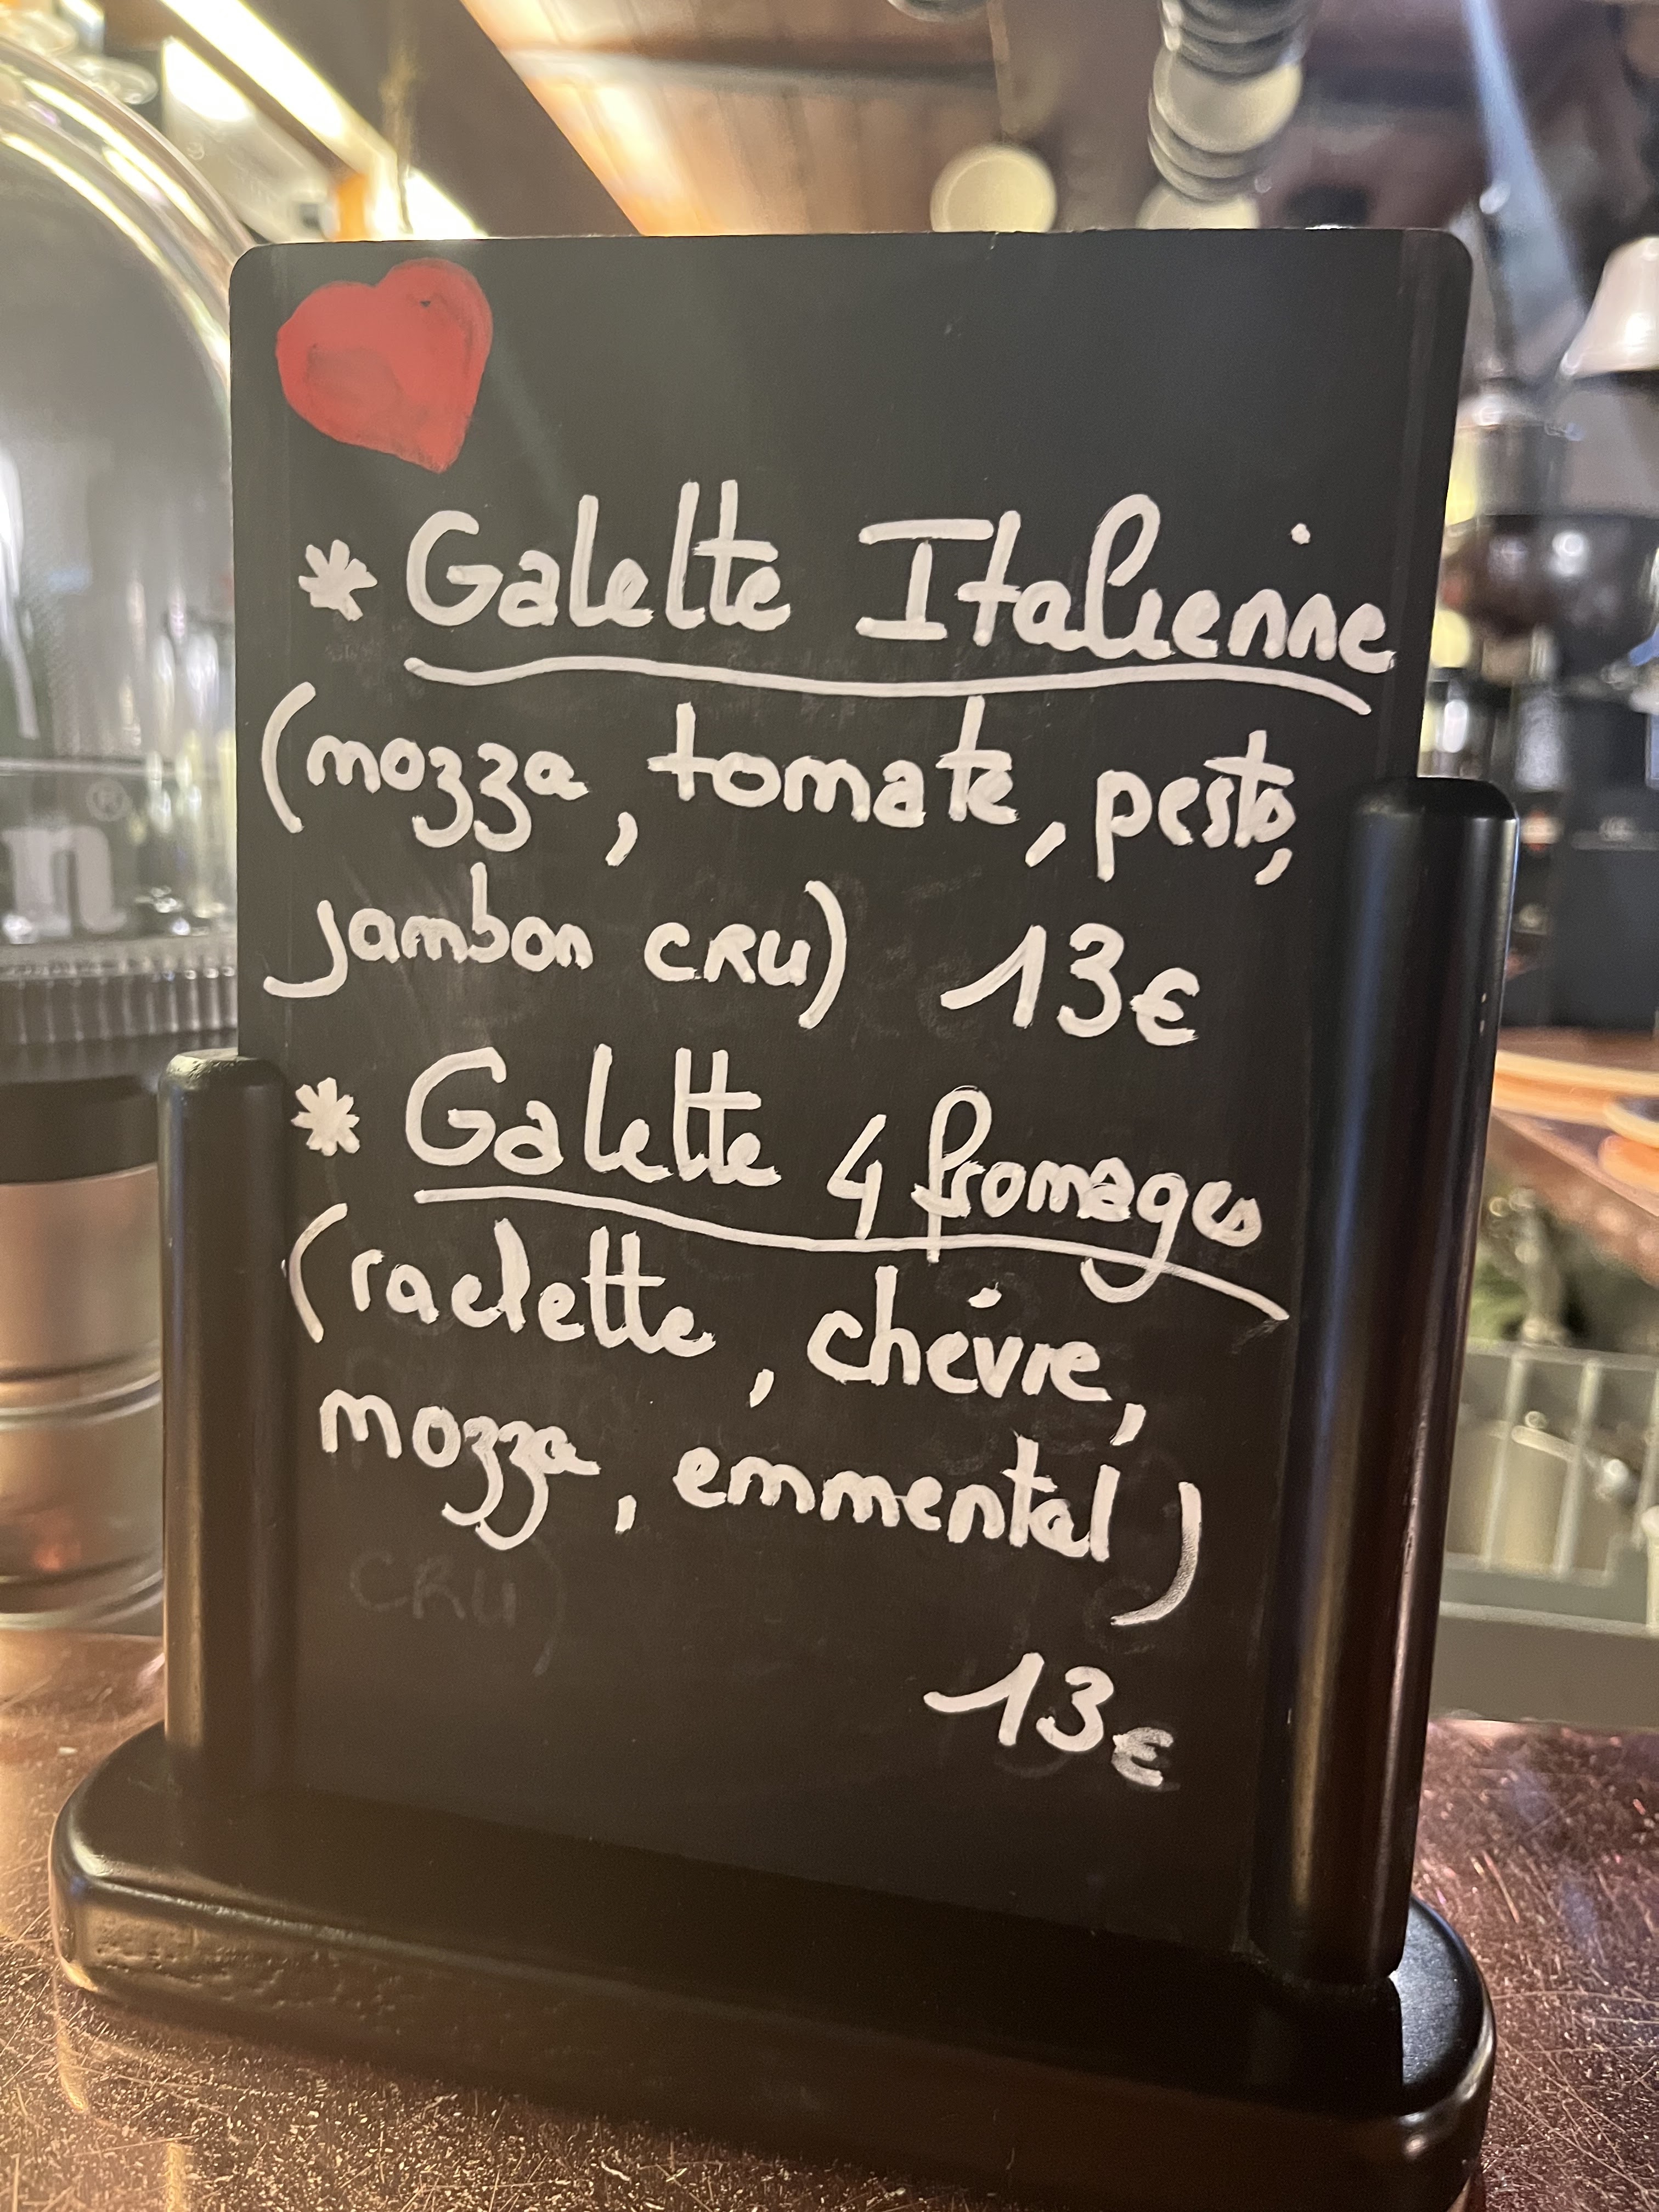 * Galette Italienne
(mozza, tomate, pesto,
jambon CRU) 13€
* Galette 4 fromages
(raclette, chèvre,
mozza, emmental)
CRU)
13€
n®